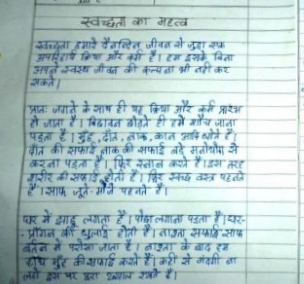 स्वच्छता का महत्व
स्वच्छता हमारे दैनन्दिन जीवन से जुड़ा एक
अपरिहार्य क्रिया और कर्म है। हम इसके बिना
अपने स्वस्थ जीवन की कल्पना भी नहीं कर
सकते।
प्रातः जगने के साथ ही यह क्रिया और कर्म प्रारंभ
हो जाता है। बिछावन छोड़ते ही हमें शौच जाना
पड़ता है। मुँह, दाँत, नाक, कान आदि धोते हैं।
दाँत की सफाई नाक की सफाई बड़े मनोयोग से
करना पड़ता है। फिर स्नान करते हैं। इस तरह
शरीर की सफाई होती है। फिर स्वच्छ वस्त्र पहनते
हैं। साफ जूते-मोजे पहनते हैं।
घर में झाड़ू लगाता है। पोछा लगाना पड़ता है। घर-
प्राँगन की धुलाई होती है। नाश्ता साफ-साफ
बर्तन में परोसा जाता है। नाश्ता के बाद हम
हाथ मुँह की सफाई करते हैं। कहीं से गंदगी ना
लगे इस पर पूरा ध्यान रखते हैं।